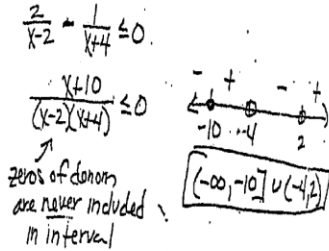 2/(x-2) - 1/(x+4) ≤ 0
(x+10)/((x-2)(x+4)) ≤ 0
- + - +
-10 -4 2
zeros of denom
are never included
in interval
(-∞, -10] ∪ (-4, 2)